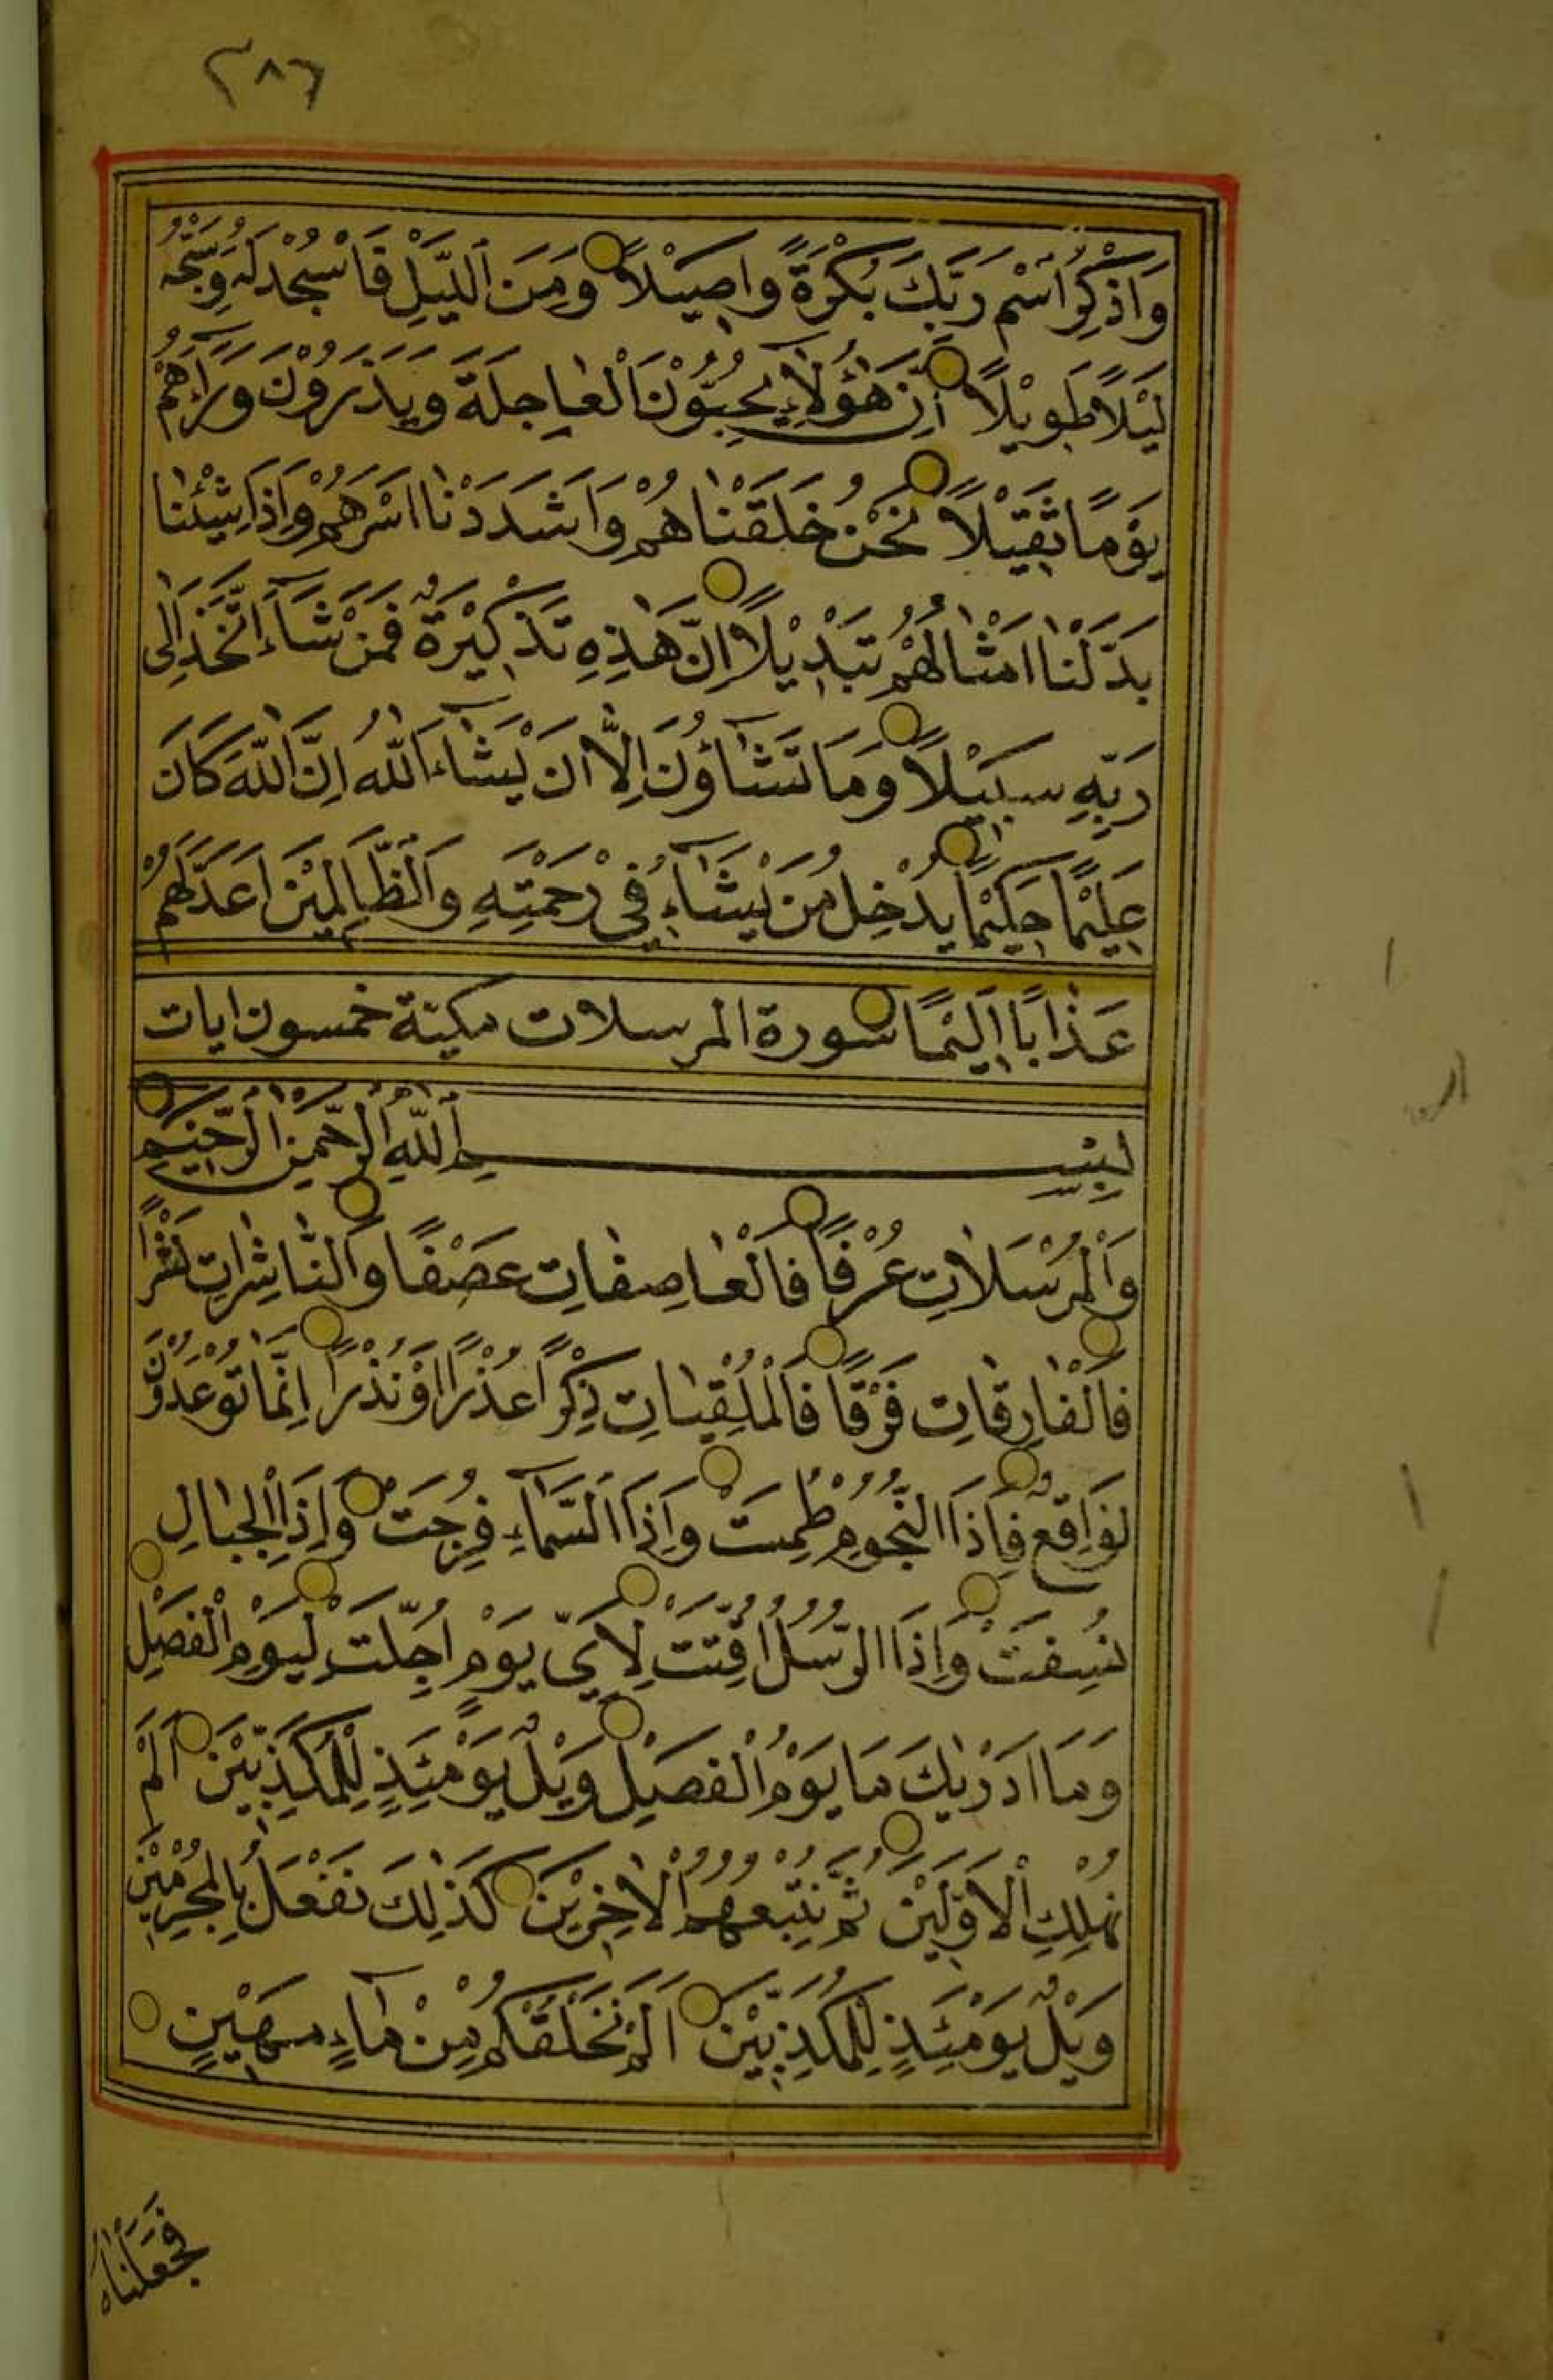 ٢٨٦
وَاذْكُرِ اسْمَ رَبِّكَ بُكْرَةً وَاَصِيْلاً وَمِنَ اللَّيْلِ فَاسْجُدْ لَهُ وَسَبِّحْهُ
لَيْلاً طَوِيْلاً اِنَّ هٰؤُلَاءِ يُحِبُّوْنَ الْعَاجِلَةَ وَيَذَرُوْنَ وَرَاءَهُمْ
يَوْمًا ثَقِيْلاً نَحْنُ خَلَقْنَاهُمْ وَاشَدَدْنَا اَسْرَهُمْ وَاِذَا شِئْنَا
بَدَّلْنَا اَمْثَالَهُمْ تَبْدِيْلاً اِنَّ هٰذِهِ تَذْكِيْرَةٌ فَمَنْ شَآءَ اتَّخَذَ اِلٰى
رَبِّهِ سَبِيْلاً وَمَا تَشَاؤُنَ اِلَّا اَنْ يَشَآءَ اللّٰهُ اِنَّ اللّٰهَ كَانَ
عَلِيْمًا حَكِيْمًا يُدْخِلُ مَنْ يَشَآءُ فِيْ رَحْمَتِهِ وَالظَّالِمِيْنَ اَعَدَّ لَهُمْ
عَذَابًا اَلِيْمًا سورة المرسلات مكية خمسون ايات
بِسْمِ اللّٰهِ الرَّحْمٰنِ الرَّحِيْمِ
وَالْمُرْسَلَاتِ عُرْفًا فَالْعَاصِفَاتِ عَصْفًا وَالنَّاشِرَاتِ نَشْرًا
فَالْفَارِقَاتِ فَرْقًا فَالْمُلْقِيَاتِ ذِكْرًا عُذْرًا اَوْ نُذْرًا اِنَّمَا تُوْعَدُوْنَ
لَوَاقِعٌ فَاِذَا النُّجُوْمُ طُمِسَتْ وَاِذَا السَّمَآءِ فُرِجَتْ وَاِذَا الْجِبَالِ
نُسِفَتْ وَاِذَا الرُّسُلُ اُقِّتَتْ لِاَيِّ يَوْمٍ اُجِّلَتْ لِيَوْمِ الْفَصْلِ
وَمَا اَدْرٰيكَ مَا يَوْمُ الْفَصْلِ وَيْلٌ يَوْمَئِذٍ لِلْمُكَذِّبِيْنَ اَلَمْ
نُهْلِكِ الْاَوَّلِيْنَ ثُمَّ نُتْبِعُهُمُ الْاٰخِرِيْنَ كَذٰلِكَ نَفْعَلُ بِالْمُجْرِمِيْنَ
وَيْلٌ يَوْمَئِذٍ لِلْمُكَذِّبِيْنَ اَلَمْ نَخْلُقْكُمْ مِنْ مَآءٍ مَهِيْنٍ
فَجَعَلْنَاهُ